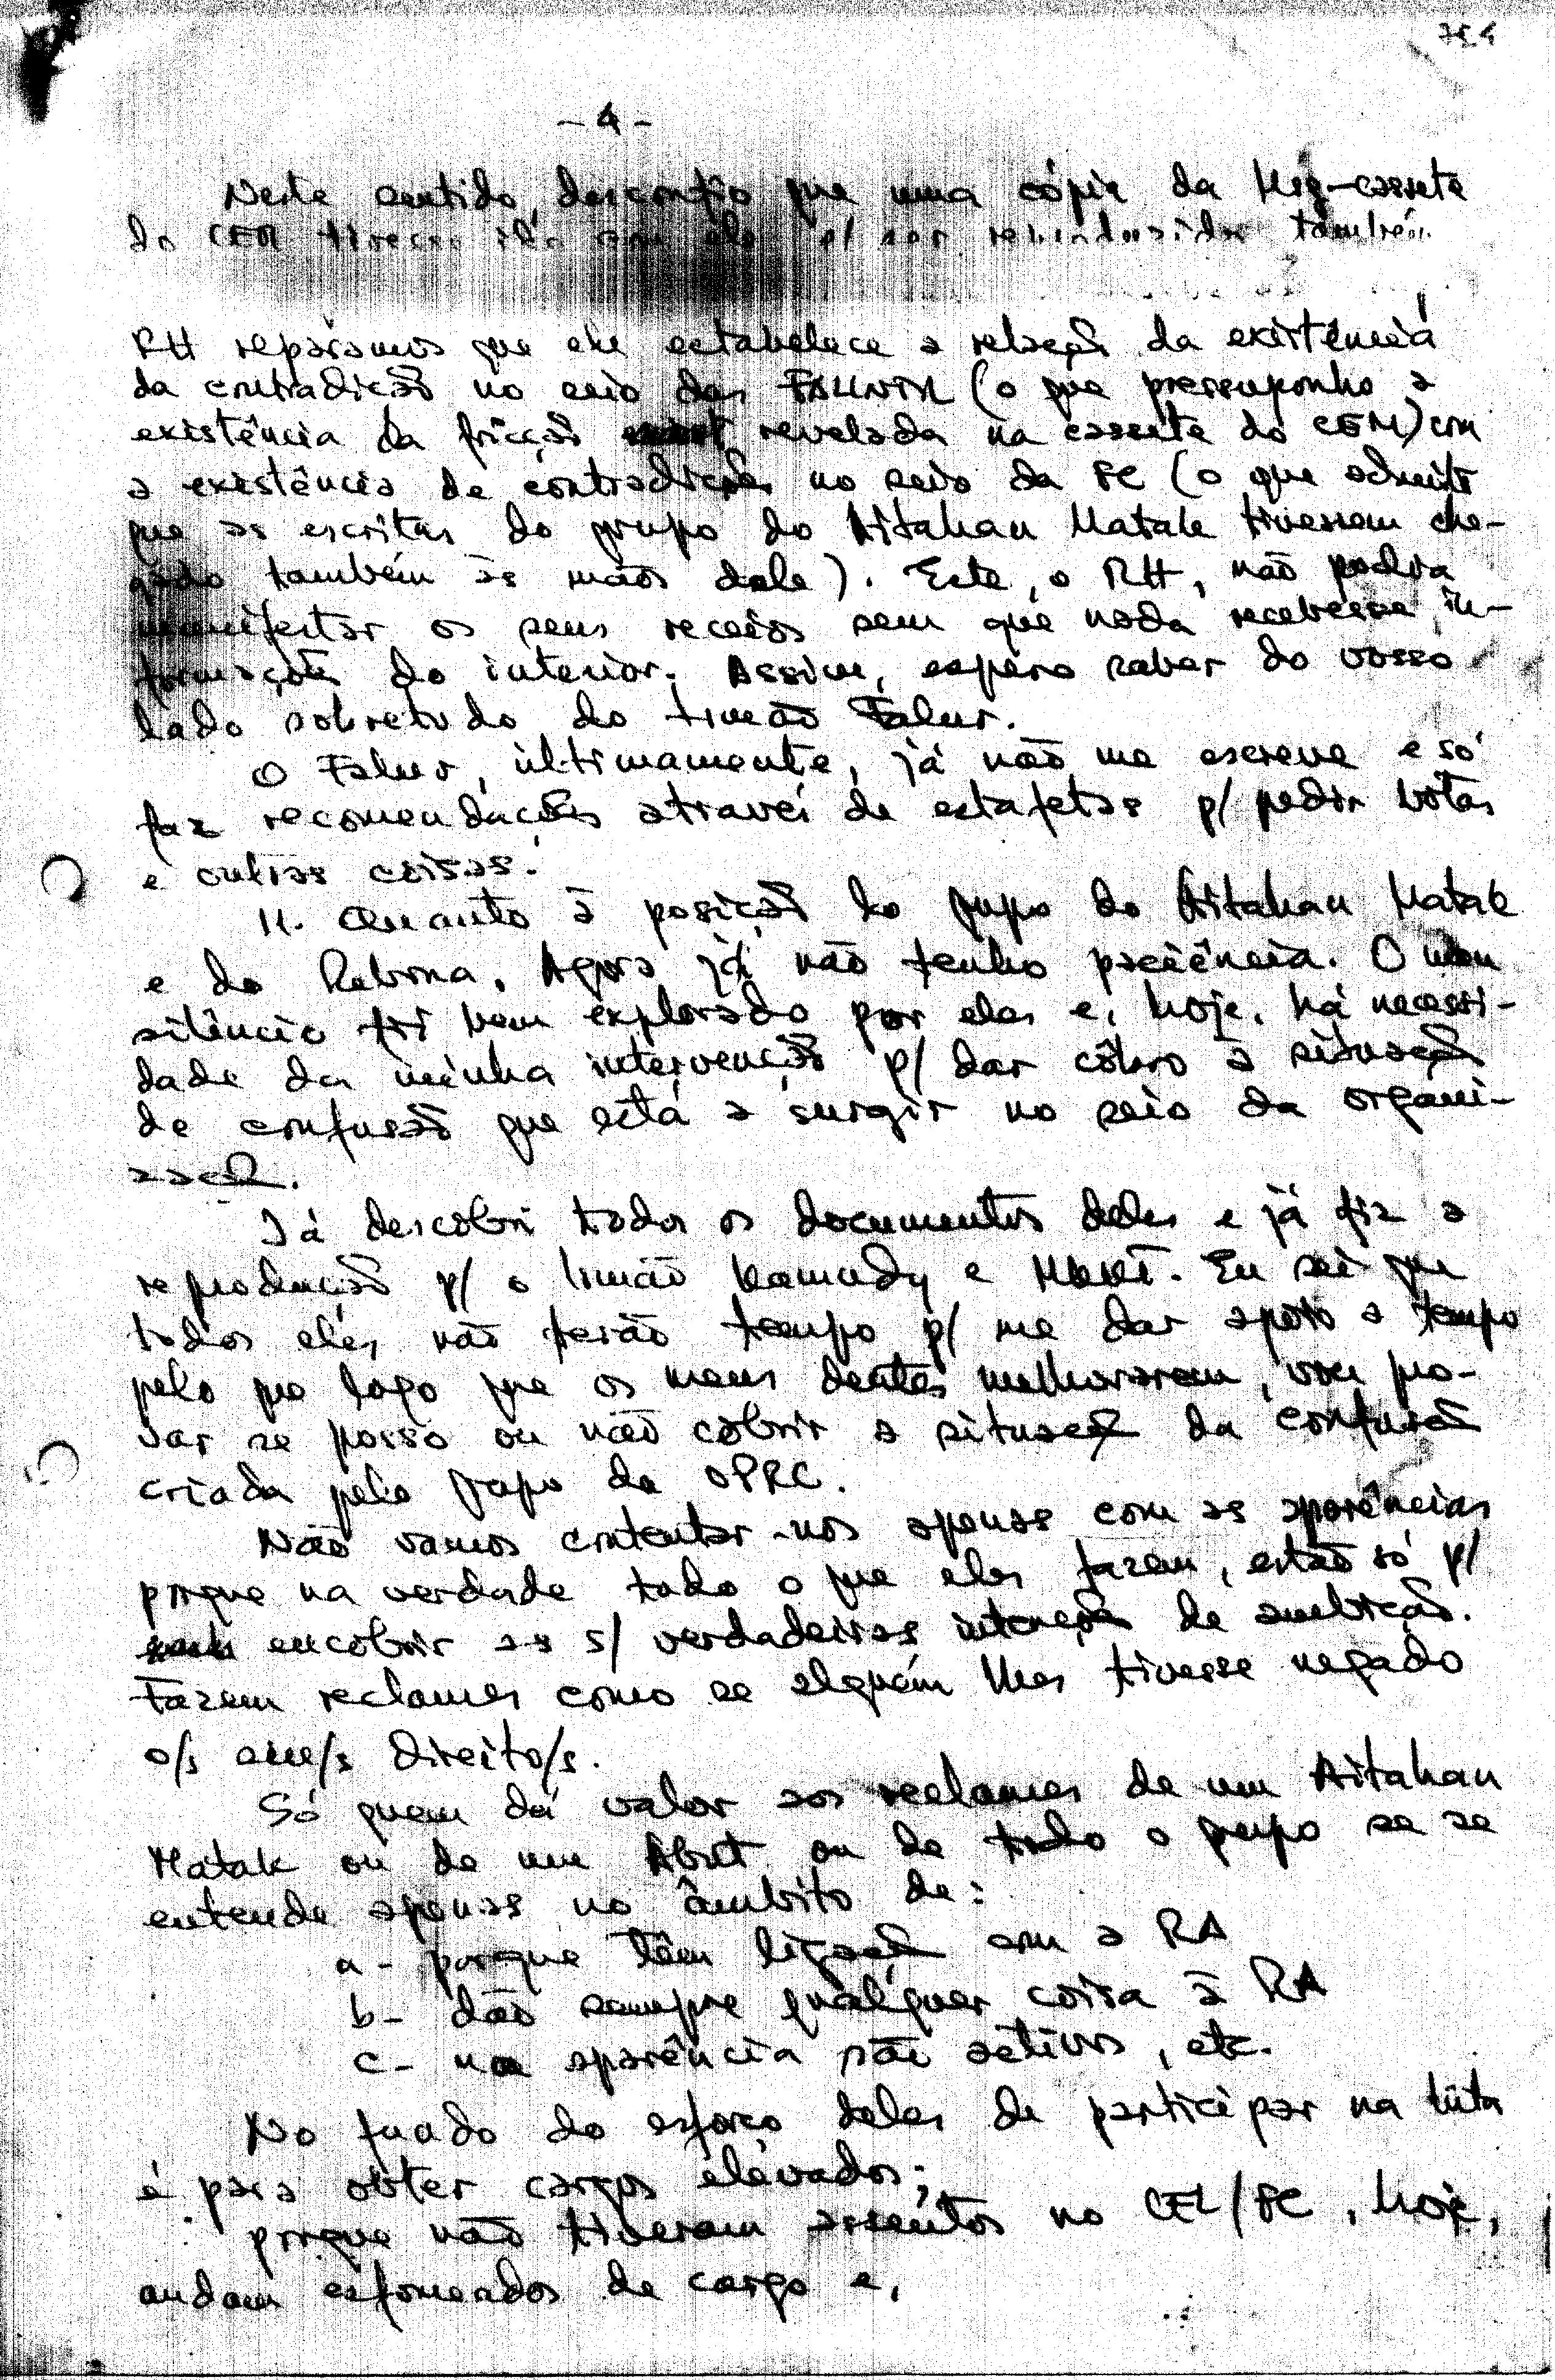 - 4 -
Neste sentido, desconfio que uma cópia da Msg-cassete
do CEM tivesse ido com ele p/ ser reproduzida também
RH reparamos que ele estabelece a relação da existência
da contradição no seio das FALINTIL (o que pressuponho a
existência da fricção revelada na cassete do CEM) com
a existência de contradições no seio da FC (o que admito
que as escritas do grupo do Aitahan Matak tivessem che-
gado também às mãos dele). Este, o RH, não podia
manifestar os seus receios sem que nada recebesse in-
formações do interior. Assim, espero saber do vosso
lado sobretudo do Irmão Falur.
O Falur, últimamente, já não me escreve e só
faz recomendações através de estafetas p/ pedir botas
e outras coisas.
11. Quanto à posição do grupo do Aitahan Matak
e do Rebona. Agora já não tenho paciência. O meu
silêncio foi bem explorado por eles e, hoje, há necessi-
dade da minha intervenção p/ dar côbro à situação
de confusão que está a surgir no seio da organi-
zação.
Já descobri todos os documentos deles e já fiz a
reprodução p/ o Irmão Kamudy e . Eu sei que
todos eles não terão tempo p/ me dar apoio a tempo
pelo que logo que os meus dentes melhorarem, vou pro-
var se posso ou não cobrir a situação da confusão
criada pelo grupo da OPRC.
Não vamos contentar-nos apenas com as aparências
porque na verdade todo o que eles fazem, estão só p/
encobrir as s/ verdadeiras intenções de ambição.
Fazem reclames como se alguém lhes tivesse negado
o/s seu/s direito/s.
Só quem dá valor aos reclames de um Aitahan
Matak ou de um ou de todo o grupo se se
entende apenas no âmbito de:
a- porque têm ligação com a RA
b- dão sempre qualquer coisa à RA
c- na aparência são activos, etc.
No fundo do esforço deles de participar na luta
é para obter cargos elevados;
porque não tiveram assentos no CEL/FC, hoje,
andam esfomeados de cargo e,